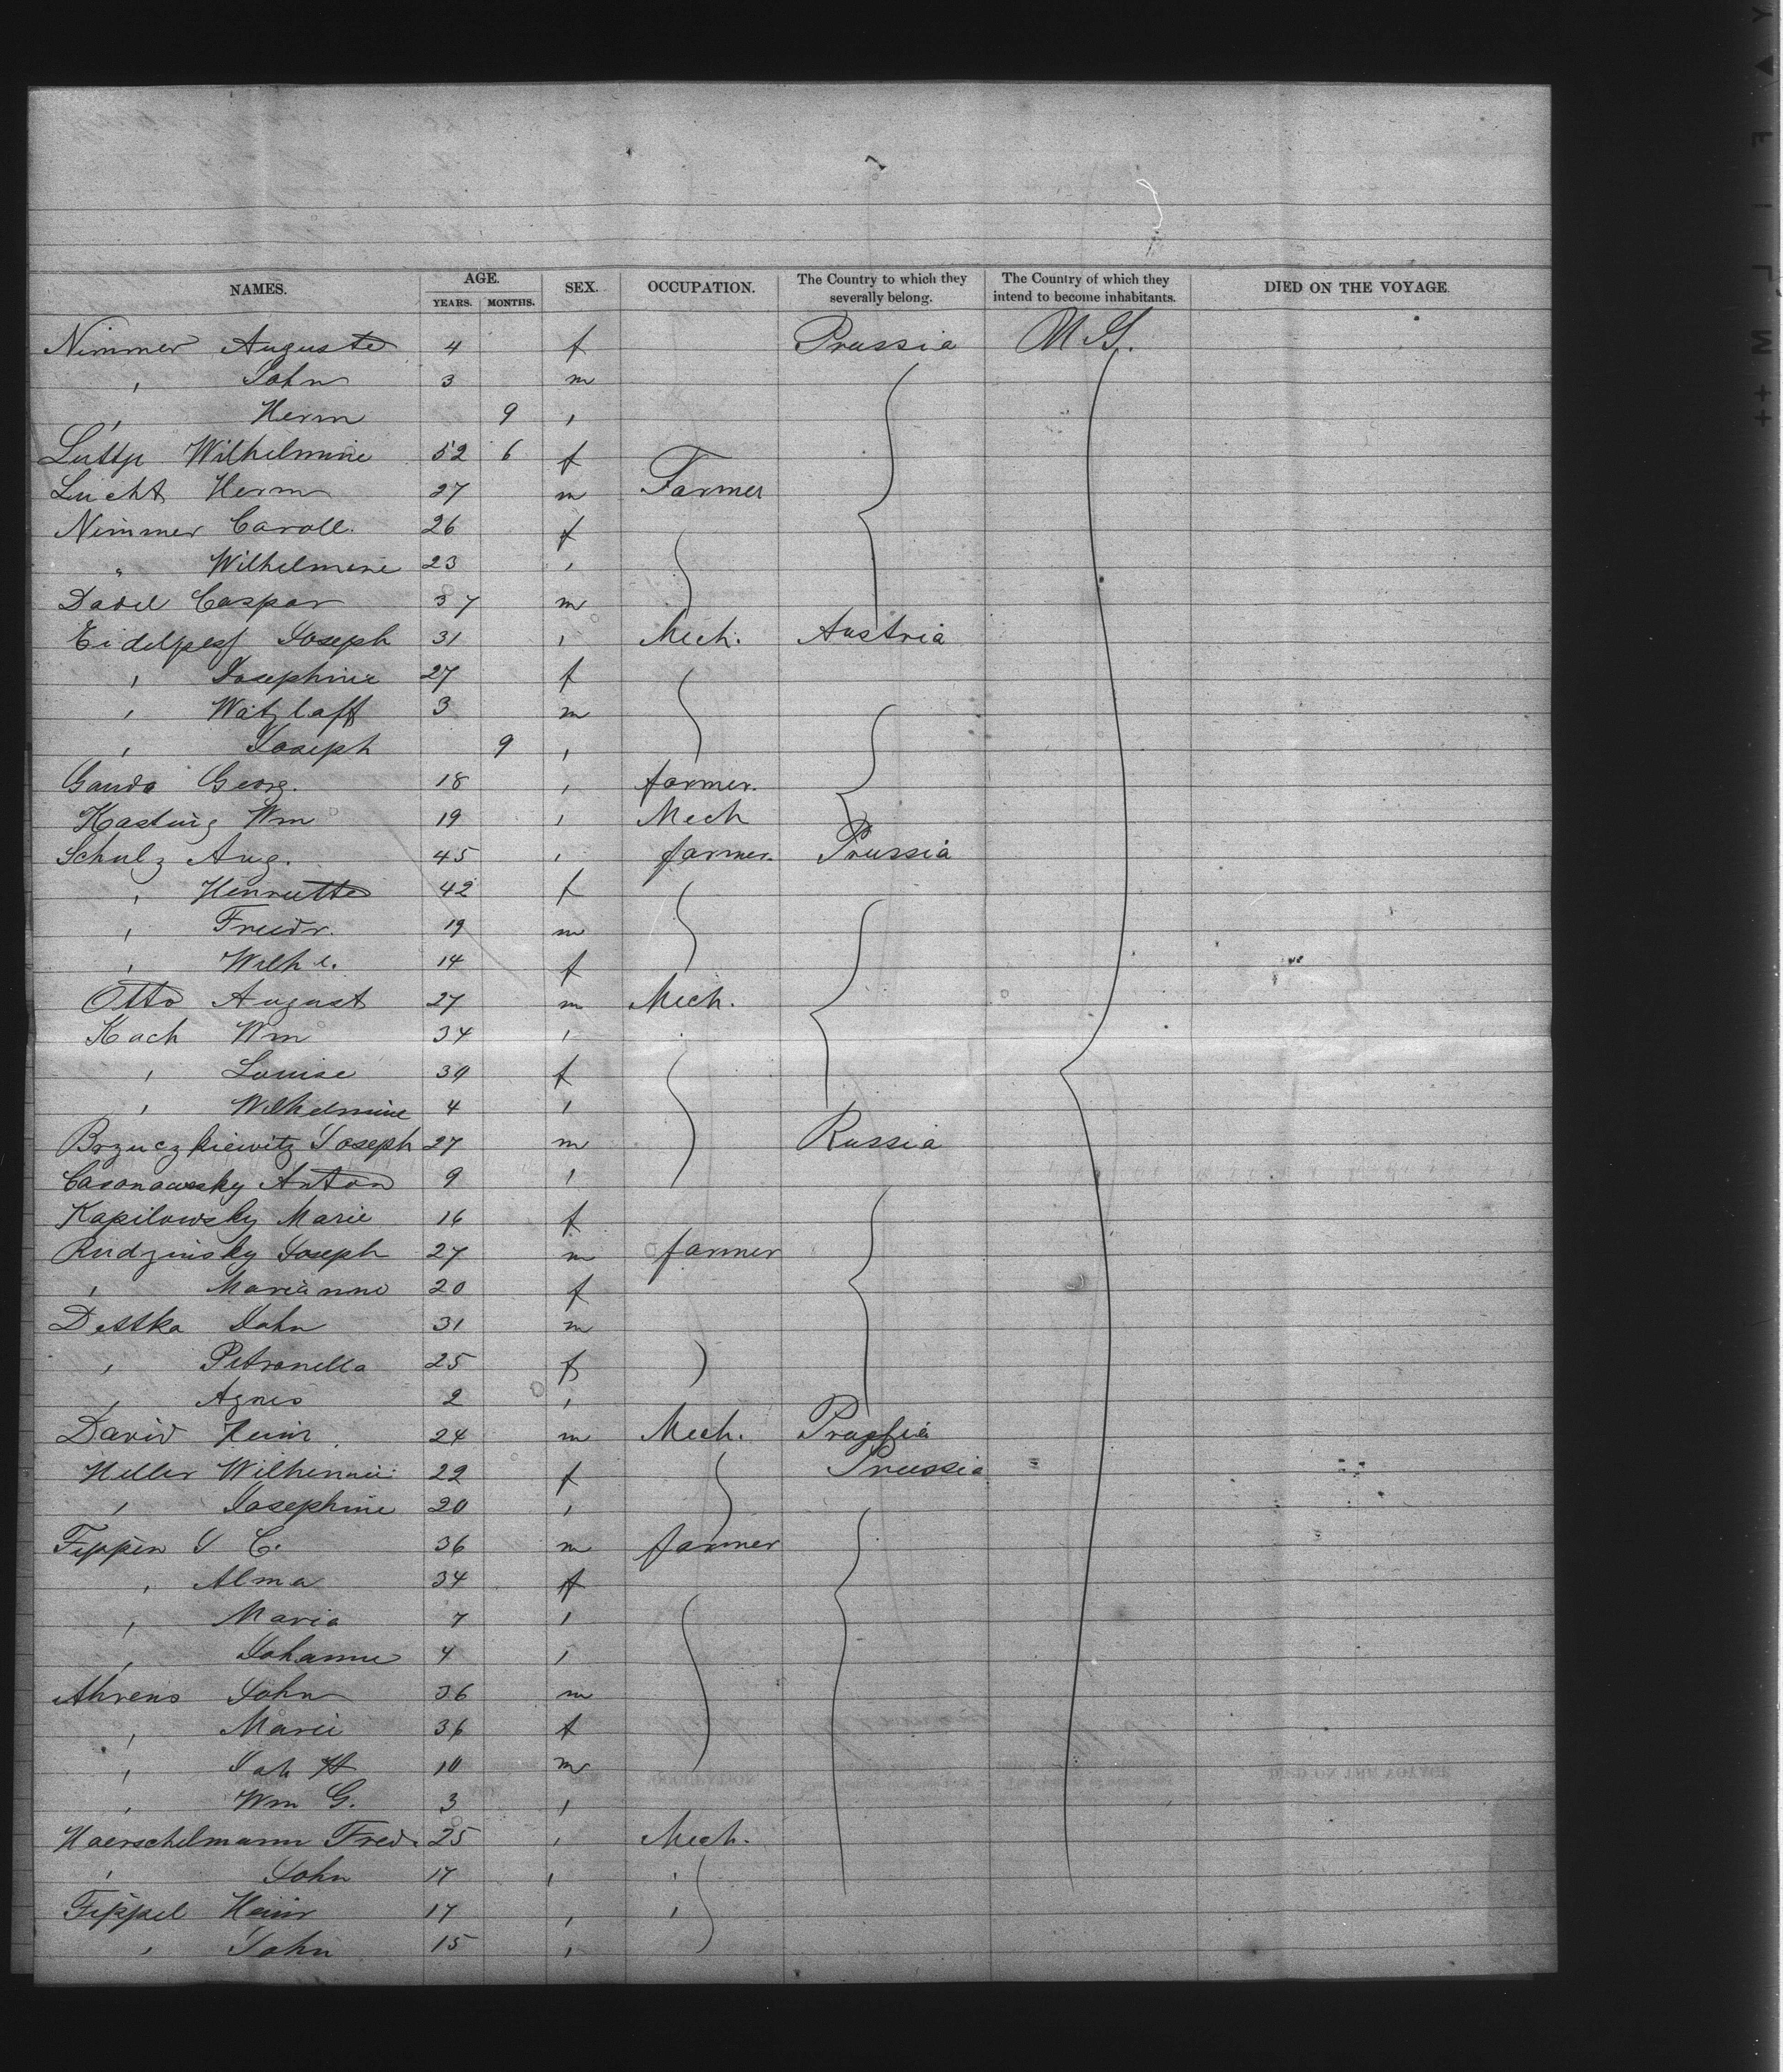 NAMES. AGE. YEARS. MONTHS. SEX. OCCUPATION. The Country to which they severally belong. The Country of which they intend to become inhabitants. DIED ON THE VOYAGE.
Nimmer Auguste 4 f Prussia U S.
" John 3 m
" Herm 9 "
Wilhelmine 52 6 f
Lucht Herm 27 m Farmer
Nimmer Caroll. 26 f
" Wilhelmine 23 "
Dadel Caspar 37 m
Joseph 31 " Mech. Austria
" Josephine 27 f
" Watzlaff 3 m
" Joseph 9 "
Gauda Georg. 18 " farmer.
Hasting Wm 19 " Mech
Schulz Aug. 45 " farmer. Prussia
" Henriette 42 f
" Friedr. 19 m
" Wilhe. 14 f
Otto August 27 m Mech.
Koch Wm 34 "
" Louise 30 f
" Wilhelmine 4 "
Brzuczkiewitz Joseph 27 m Russia
Casonawsky Anton 9 "
Kapilowsky Marie 16 f
Rudzinsky Joseph 27 m farmer
" Marianne 20 f
Dettka John 31 m
" Petronella 25 f
" Agnes 2 "
David Heinr. 24 m Mech. Prussia
Heller Wilhemine 22 f Prussia
" Josephine 20 "
Fippen J C. 36 m farmer
" Alma 34 f
" Maria 7 "
" Johanne 4 "
Ahrens John 36 m
" Marie 36 f
" Joh H 10 m
" Wm G. 3 "
Haerschelmann Fred. 25 " Mech.
" John 17 " "
Fippel Heinr 17 " "
" John 15 "